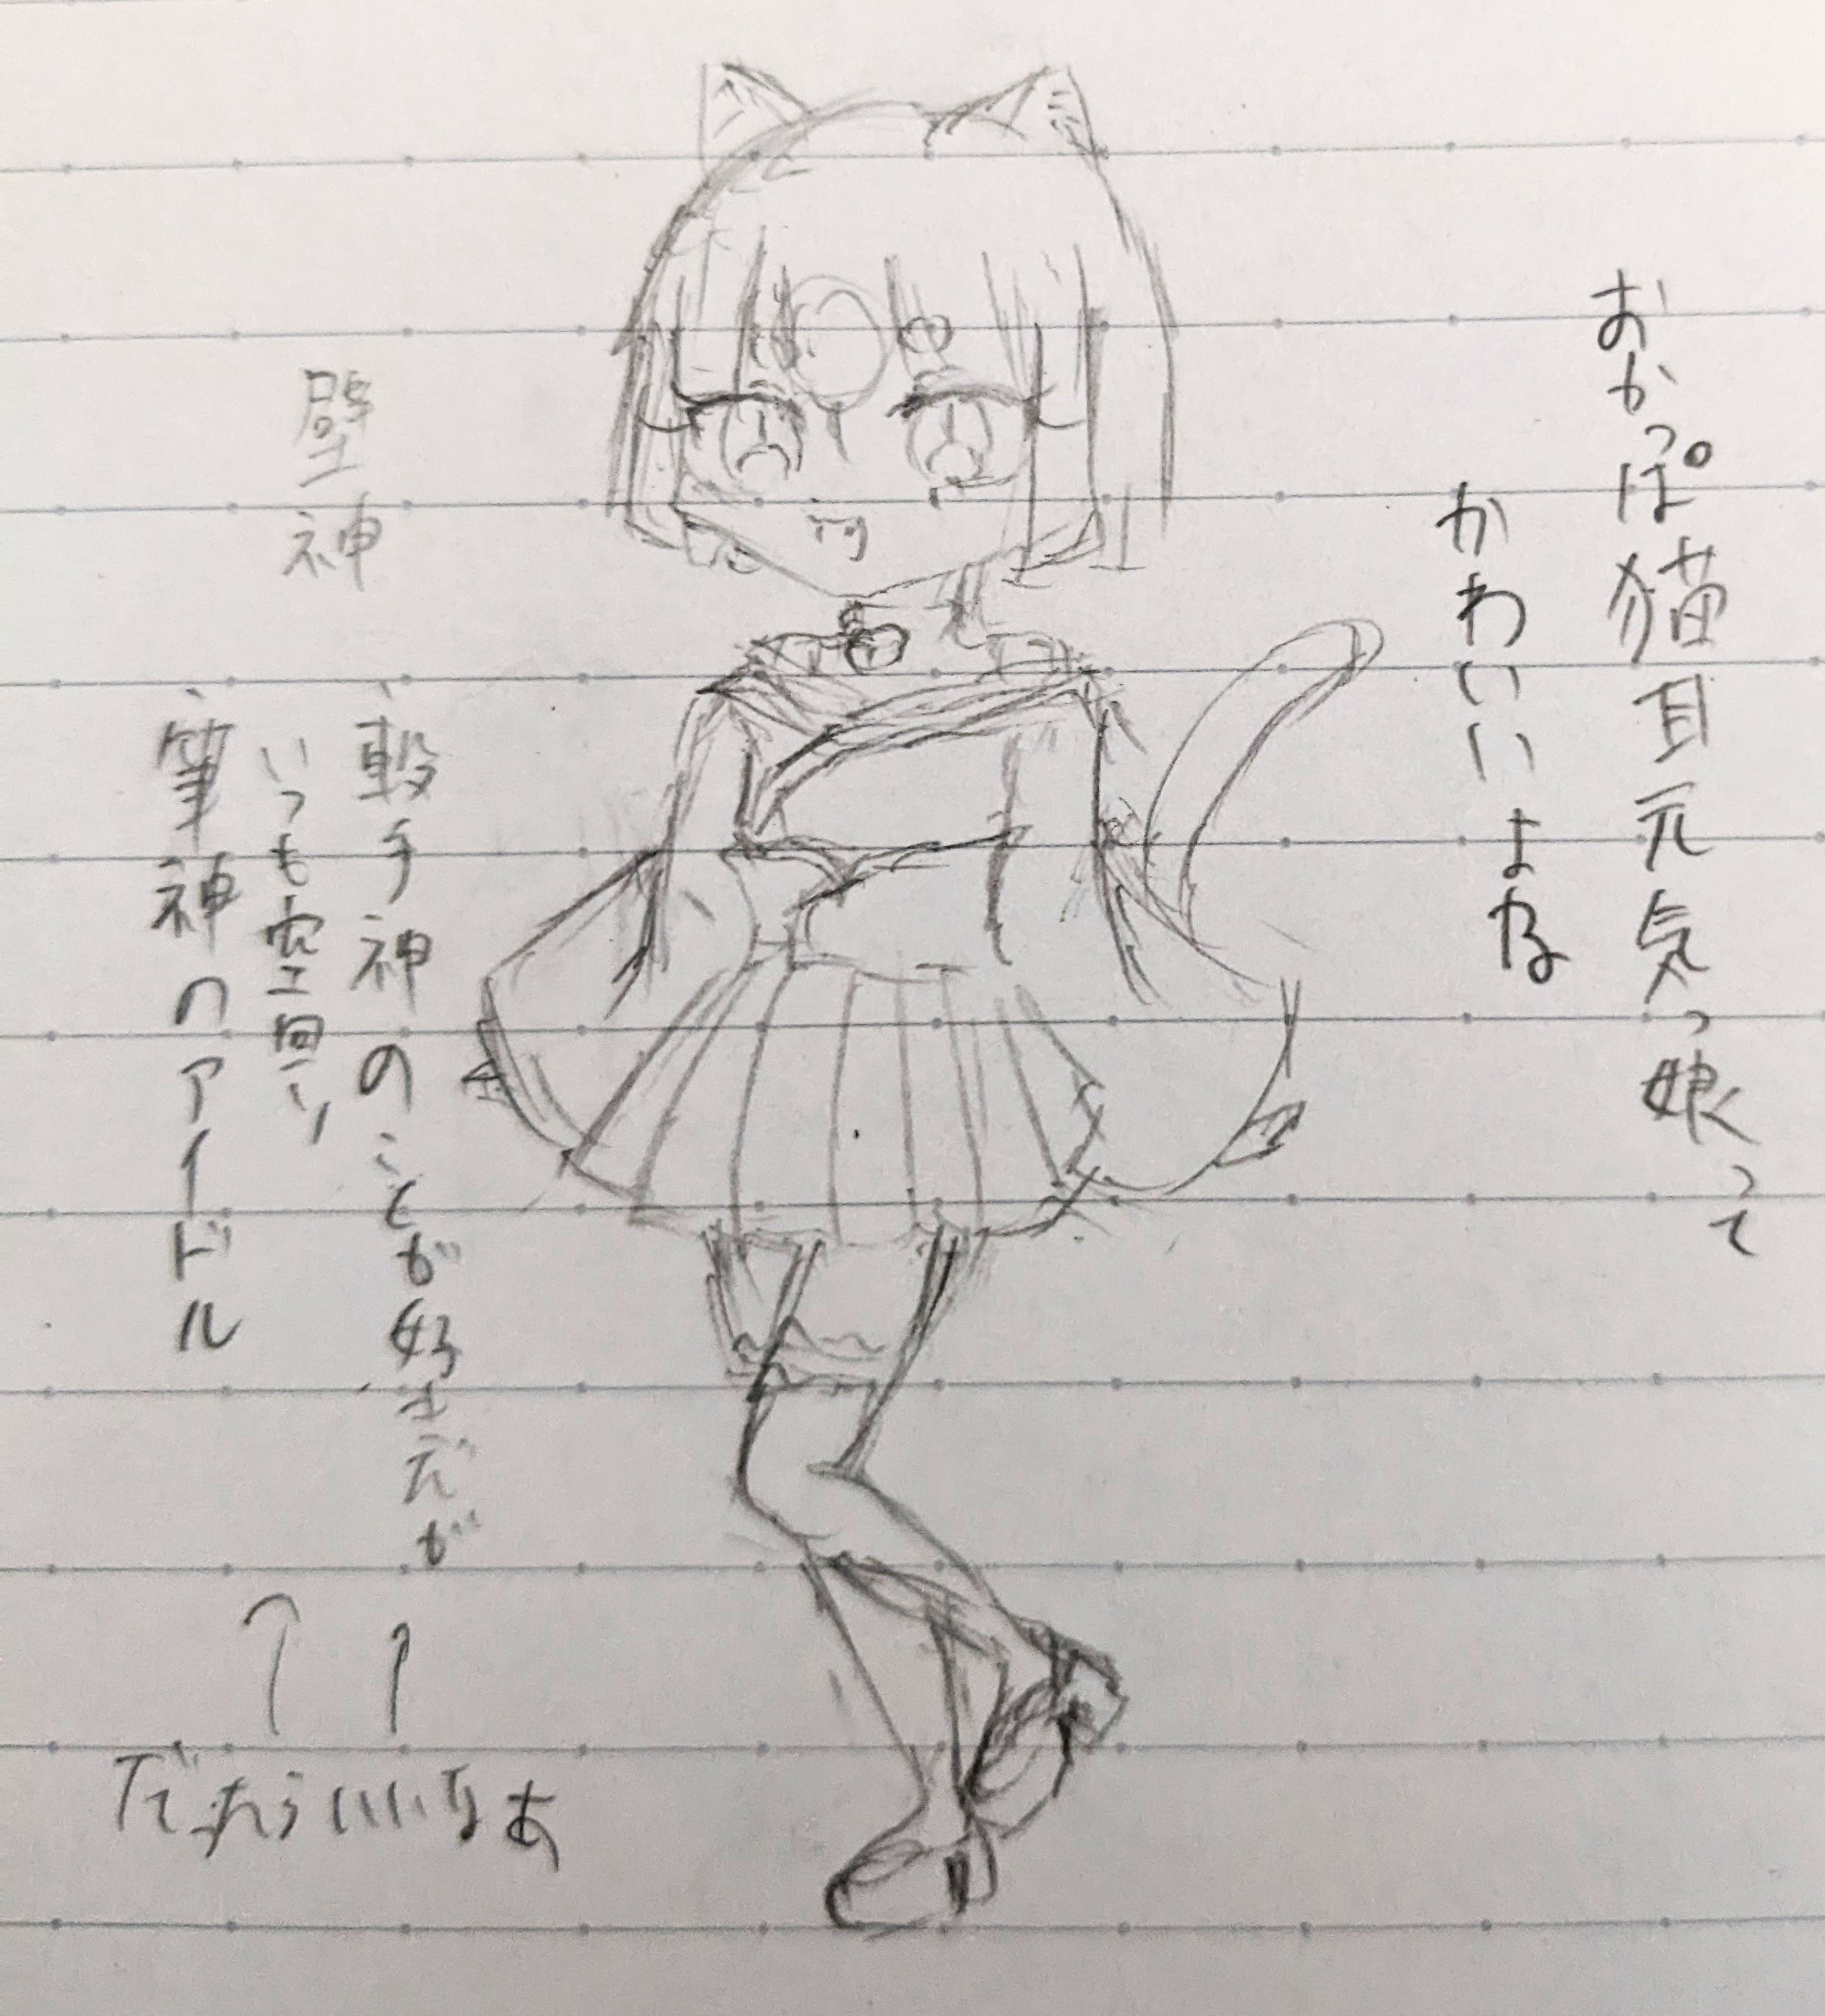 おかっぱ猫耳元気っ娘って
かわいいよな
壁神
・撃神のことが好きだが
いつも空回り
・筆神のアイドル
↑ ↑
だったらいいなぁ